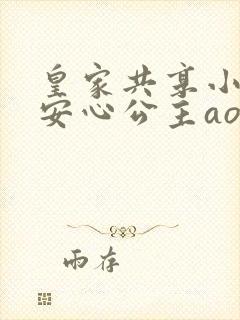 皇家共享小
安心公主ao
雨存